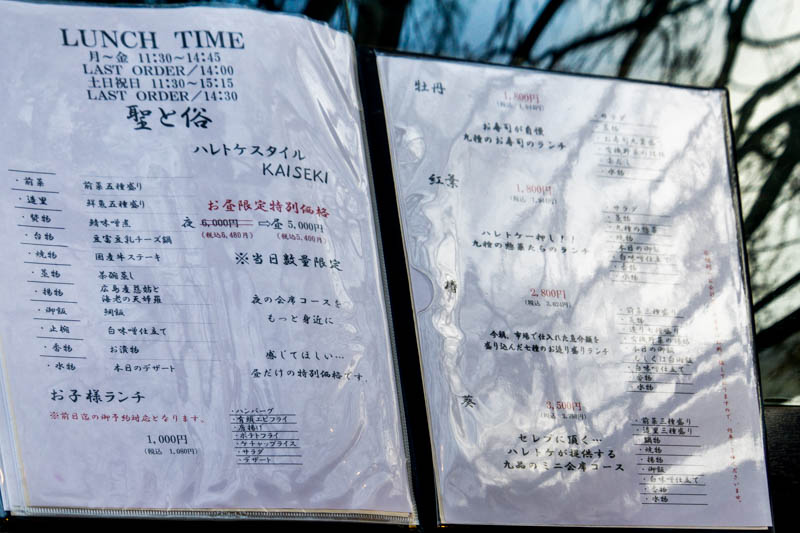 LUNCH TIME
月～金 11:30～14:45
LAST ORDER／14:00
土日祝日 11:30～15:15
LAST ORDER／14:30
聖と俗
ハレトケスタイル
KAISEKI
・前菜 前菜五種盛り
・造里 鮮魚五種盛り
・焚物 鯖味噌煮
・台物 豆富豆乳チーズ鍋
・焼物 国産牛ステーキ
・蒸物 茶碗蒸し
・揚物 広島産慈姑と
海老の天婦羅
・御飯 鯛飯
・止椀 白味噌仕立て
・香物 お漬物
・水物 本日のデザート
お昼限定特別価格
夜 6,000円 ⇨昼 5,000円
(税込6,480円) (税込5,400円)
※当日数量限定
夜の会席コースを
もっと身近に
感じてほしい…
昼だけの特別価格です
お子様ランチ
※前日迄の御予約対応となります。
1,000円
(税込 1,080円)
・ハンバーグ
・有頭エビフライ
・唐揚げ
・ポテトフライ
・ケチャップライス
・サラダ
・デザート
牡丹
1,800円
お寿司が自慢
九種のお寿司のランチ
・サラダ
・水物
紅葉
1,800円
ハレトケ一押し！！
九種の惣菜たちのランチ
・サラダ
・九種の惣菜
・焼物
・本日の御飯
・白味噌仕立て
・香物
・水物
橘
2,800円
(税込 3,024円)
今朝、市場で仕入れた魚介類を
盛り込んだ七種のお造り盛りランチ
・前菜三種盛り
・造り七種盛り
・白味噌仕立て
・香物
・水物
葵
3,500円
(税込 3,780円)
セレブに頂く…
ハレトケが提供する
九品のミニ会席コース
・前菜三種盛り
・造里三種盛り
・鍋物
・焼物
・揚物
・御飯
・白味噌仕立て
・香物
・水物